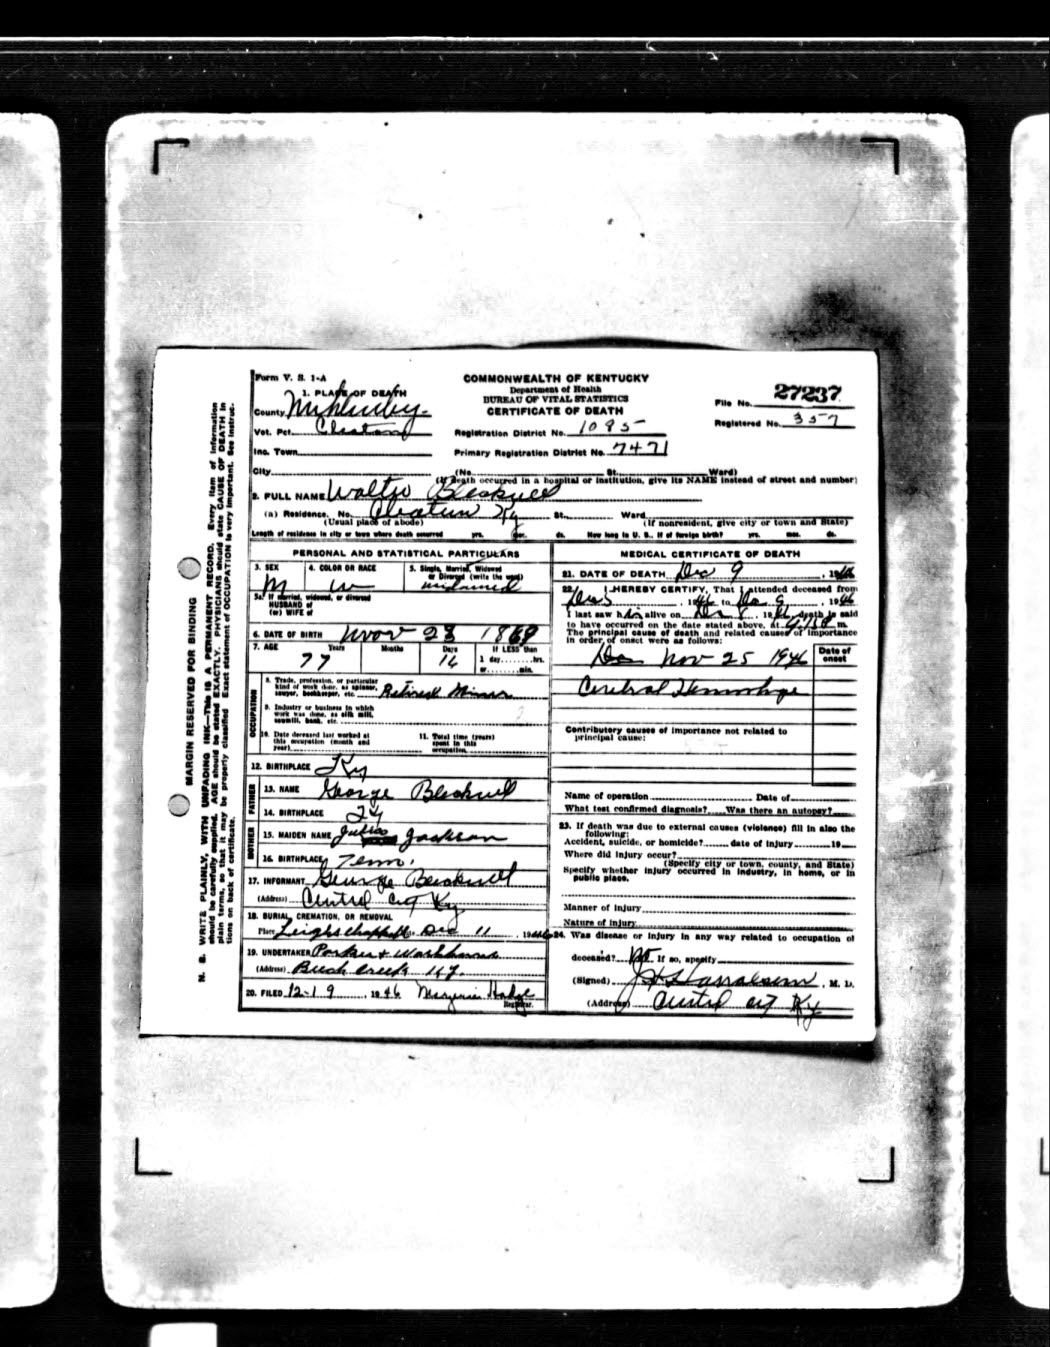 Form V. S. 1-A
COMMONWEALTH OF KENTUCKY
Department of Health
BUREAU OF VITAL STATISTICS
CERTIFICATE OF DEATH
File No. 27237
Registered No. 357
1. PLACE OF DEATH
County Muhlenberg
Vot. Pct. Cleaton
Registration District No. 1095
Inc. Town
Primary Registration District No. 7471
City (No. St. Ward)
(If death occurred in a hospital or institution, give its NAME instead of street and number)
2. FULL NAME Walter Blackwell
(a) Residence. No. Cleaton Ky St. Ward
(Usual place of abode) (If nonresident, give city or town and State)
Length of residence in city or town where death occurred yrs. mos. ds. How long in U. S., if of foreign birth? yrs. mos. ds.
PERSONAL AND STATISTICAL PARTICULARS
3. SEX
M
4. COLOR OR RACE
W
5. Single, Married, Widowed or Divorced (write the word)
widowed
5a. If married, widowed, or divorced
HUSBAND of
(or) WIFE of
6. DATE OF BIRTH Nov 23 1869
7. AGE Years Months Days If LESS than
77 16 1 day........hrs.
or........min.
OCCUPATION
8. Trade, profession, or particular
kind of work done, as spinner,
sawyer, bookkeeper, etc. Retired Miner
9. Industry or business in which
work was done, as silk mill,
sawmill, bank, etc.
10. Date deceased last worked at
this occupation (month and
year)
11. Total time (years)
spent in this
occupation
12. BIRTHPLACE Ky
FATHER
13. NAME George Blackwell
14. BIRTHPLACE Ky
MOTHER
15. MAIDEN NAME Julia Jackson
16. BIRTHPLACE Tenn.
17. INFORMANT George Blackwell
(Address) Central City Ky
18. BURIAL, CREMATION, OR REMOVAL
Place Leighs Chappell Dec 11, 1946
19. UNDERTAKER Parker &
(Address) Beech Creek Ky.
20. FILED 12-19 1946
Registrar.
MEDICAL CERTIFICATE OF DEATH
21. DATE OF DEATH Dec 9, 1946
22. I HEREBY CERTIFY, That I attended deceased from
Dec 5, 1946 to Dec 9, 1946
I last saw h alive on Dec, 1946 death is said
to have occurred on the date stated above, at m.
The principal cause of death and related causes of importance
in order of onset were as follows:
Date of
onset
Nov 25 1946
Cerebral Hemorrhage
Contributory causes of importance not related to
principal cause:
Name of operation Date of
What test confirmed diagnosis? Was there an autopsy?
23. If death was due to external causes (violence) fill in also the
following:
Accident, suicide, or homicide? date of injury 19
Where did injury occur?
(Specify city or town, county, and State)
Specify whether injury occurred in industry, in home, or in
public place.
Manner of injury
Nature of injury
24. Was disease or injury in any way related to occupation of
deceased? No If so, specify
(Signed), M. D.
(Address) Central City Ky
MARGIN RESERVED FOR BINDING
N. B. WRITE PLAINLY, WITH UNFADING INK—THIS IS A PERMANENT RECORD. Every item of information
should be carefully supplied. AGE should be stated EXACTLY. PHYSICIANS should state CAUSE OF DEATH in
plain terms, so that it may be properly classified. Exact statement of OCCUPATION is very important. See instruc-
tions on back of certificate.